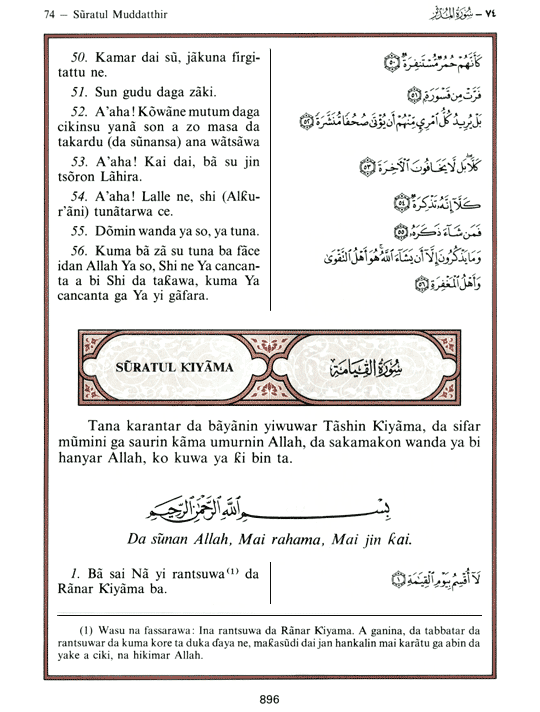 74 — Sūratul Muddatthir
٧٤ — سُورَةُ المُدَّثِّر
50. Kamar dai sũ, jãkuna firgi-
tattu ne.
كَأَنَّهُمْ حُمُرٌ مُّسْتَنفِرَةٌ ﴿٥٠﴾
51. Sun gudu daga zãki.
فَرَّتْ مِن قَسْوَرَةٍ ﴿٥١﴾
52. A'aha! Kõwãne mutum daga
cikinsu yanã son a zo masa da
takardu (da sũnansa) ana wãtsãwa
بَلْ يُرِيدُ كُلُّ امْرِئٍ مِّنْهُمْ أَن يُؤْتَىٰ صُحُفًا مُّنَشَّرَةً ﴿٥٢﴾
53. A'aha! Kai dai, bã su jin
tsõron Lãhira.
كَلَّا بَل لَّا يَخَافُونَ الْآخِرَةَ ﴿٥٣﴾
54. A'aha! Lalle ne, shi (Alƙu-
r'ãni) tunãtarwa ce.
كَلَّا إِنَّهُ تَذْكِرَةٌ ﴿٥٤﴾
55. Dõmin wanda ya so, ya tuna.
فَمَن شَاءَ ذَكَرَهُ ﴿٥٥﴾
56. Kuma bã zã su tuna ba fãce
idan Allah Ya so, Shi ne Ya cancan-
ta a bi Shi da taƙawa, kuma Ya
cancanta ga Ya yi gãfara.
وَمَا يَذْكُرُونَ إِلَّا أَن يَشَاءَ اللَّهُ هُوَ أَهْلُ التَّقْوَىٰ
وَأَهْلُ الْمَغْفِرَةِ ﴿٥٦﴾
SŨRATUL ƘIYÃMA
سُورَةُ القِيَامَةِ
Tana karantar da bãyãnin yiwuwar Tãshin Ƙiyãma, da sifar
mũmini ga saurin kãma umurnin Allah, da sakamakon wanda ya bi
hanyar Allah, ko kuwa ya ƙi bin ta.
بِسْمِ اللَّهِ الرَّحْمَٰنِ الرَّحِيمِ
Da sũnan Allah, Mai rahama, Mai jin ƙai.
1. Bã sai Nã yi rantsuwa(1) da
Rãnar Ƙiyãma ba.
لَا أُقْسِمُ بِيَوْمِ الْقِيَامَةِ ﴿١﴾
(1) Wasu na fassarawa: Ina rantsuwa da Rãnar Ƙiyama. A ganina, da tabbatar da
rantsuwar da kuma kore ta duka ɗaya ne, maƙasũdi dai jan hankalin mai karãtu ga abin da
yake a ciki, na hikimar Allah.
896